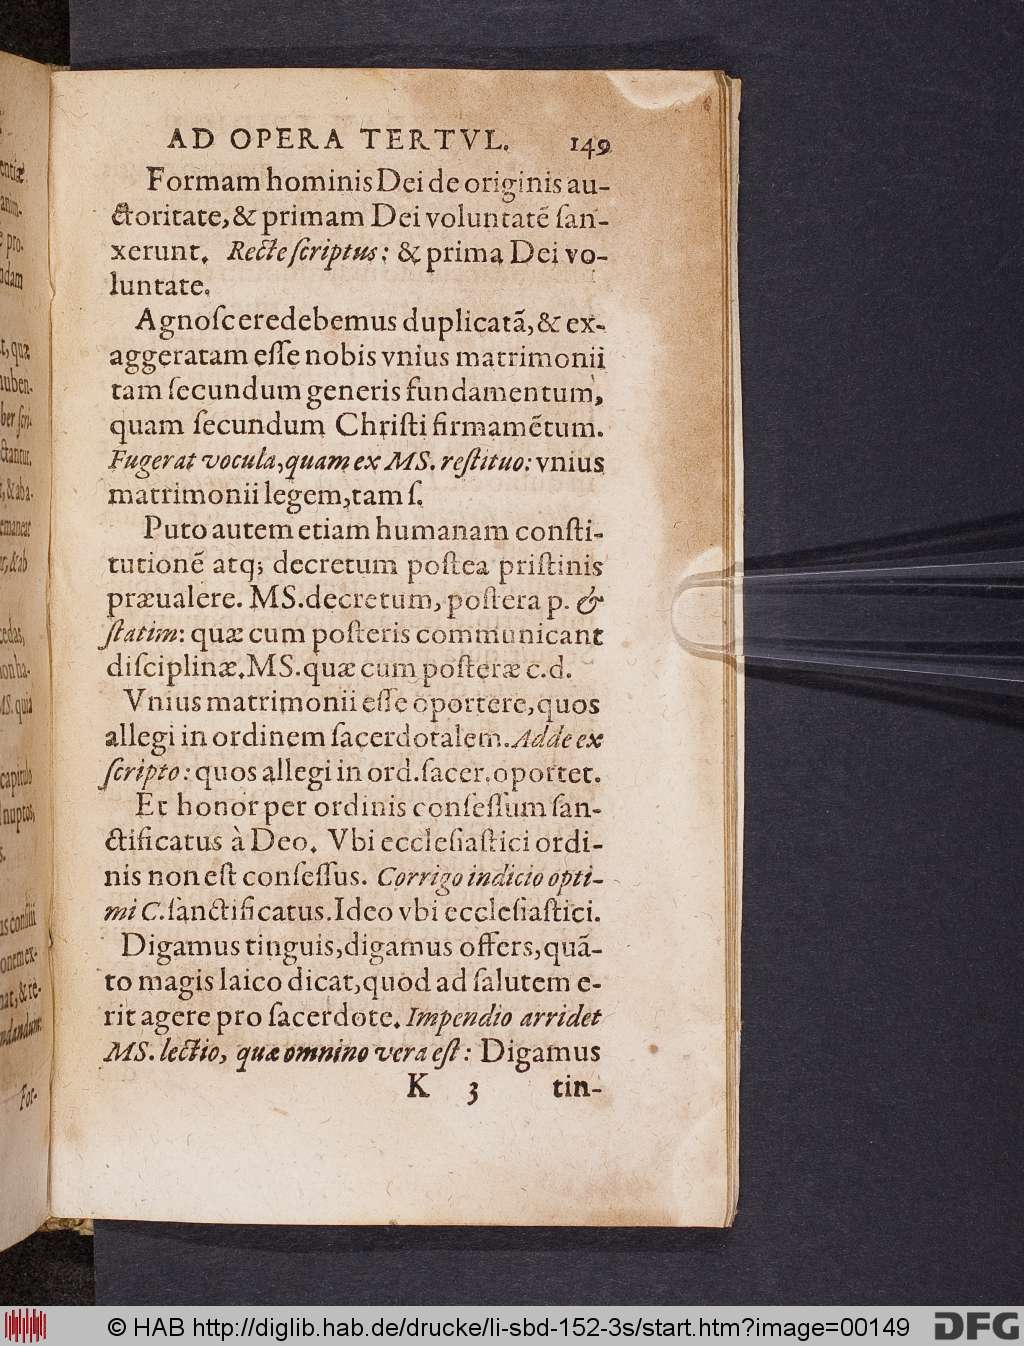 AD OPERA TERTVL. 149
Formam hominis Dei de originis au-
ctoritate, & primam Dei voluntatē ſan-
xerunt. Recte ſcriptus: & prima Dei vo-
luntate.
Agnoſcere debemus duplicatā, & ex-
aggeratam eſſe nobis vnius matrimonii
tam ſecundum generis fundamentum,
quam ſecundum Chriſti firmamētum.
Fugerat vocula, quam ex MS. reſtituo: vnius
matrimonii legem, tam ſ.
Puto autem etiam humanam conſti-
tutionē atq; decretum poſtea priſtinis
præualere. MS. decretum, poſtera p. &
ſtatim: quæ cum poſteris communicant
diſciplinæ. MS. quæ cum poſteræ c. d.
Vnius matrimonii eſſe oportere, quos
allegi in ordinem ſacerdotalem. Adde ex
ſcripto: quos allegi in ord. ſacer. oportet.
Et honor per ordinis conſeſſum ſan-
ctificatus à Deo. Vbi eccleſiaſtici ordi-
nis non eſt conſeſſus. Corrigo indicio opti-
mi C. ſanctificatus. Ideo vbi eccleſiaſtici.
Digamus tinguis, digamus offers, quā-
to magis laico dicat, quod ad ſalutem e-
rit agere pro ſacerdote. Impendio arridet
MS. lectio, quæ omnino vera eſt: Digamus
K 3 tin-
entiæ
anim-
e pro-
ndam
t, quæ
nuben-
ber ſcri-
ctantur.
t, & aba-
emaneat
r, & ab
cedas,
non ha-
MS. quia
capitulo
nuptos,
s.
us conſilii
onem ex-
nat, & re-
ndandum:
For-
© HAB http://diglib.hab.de/drucke/li-sbd-152-3s/start.htm?image=00149
DFG